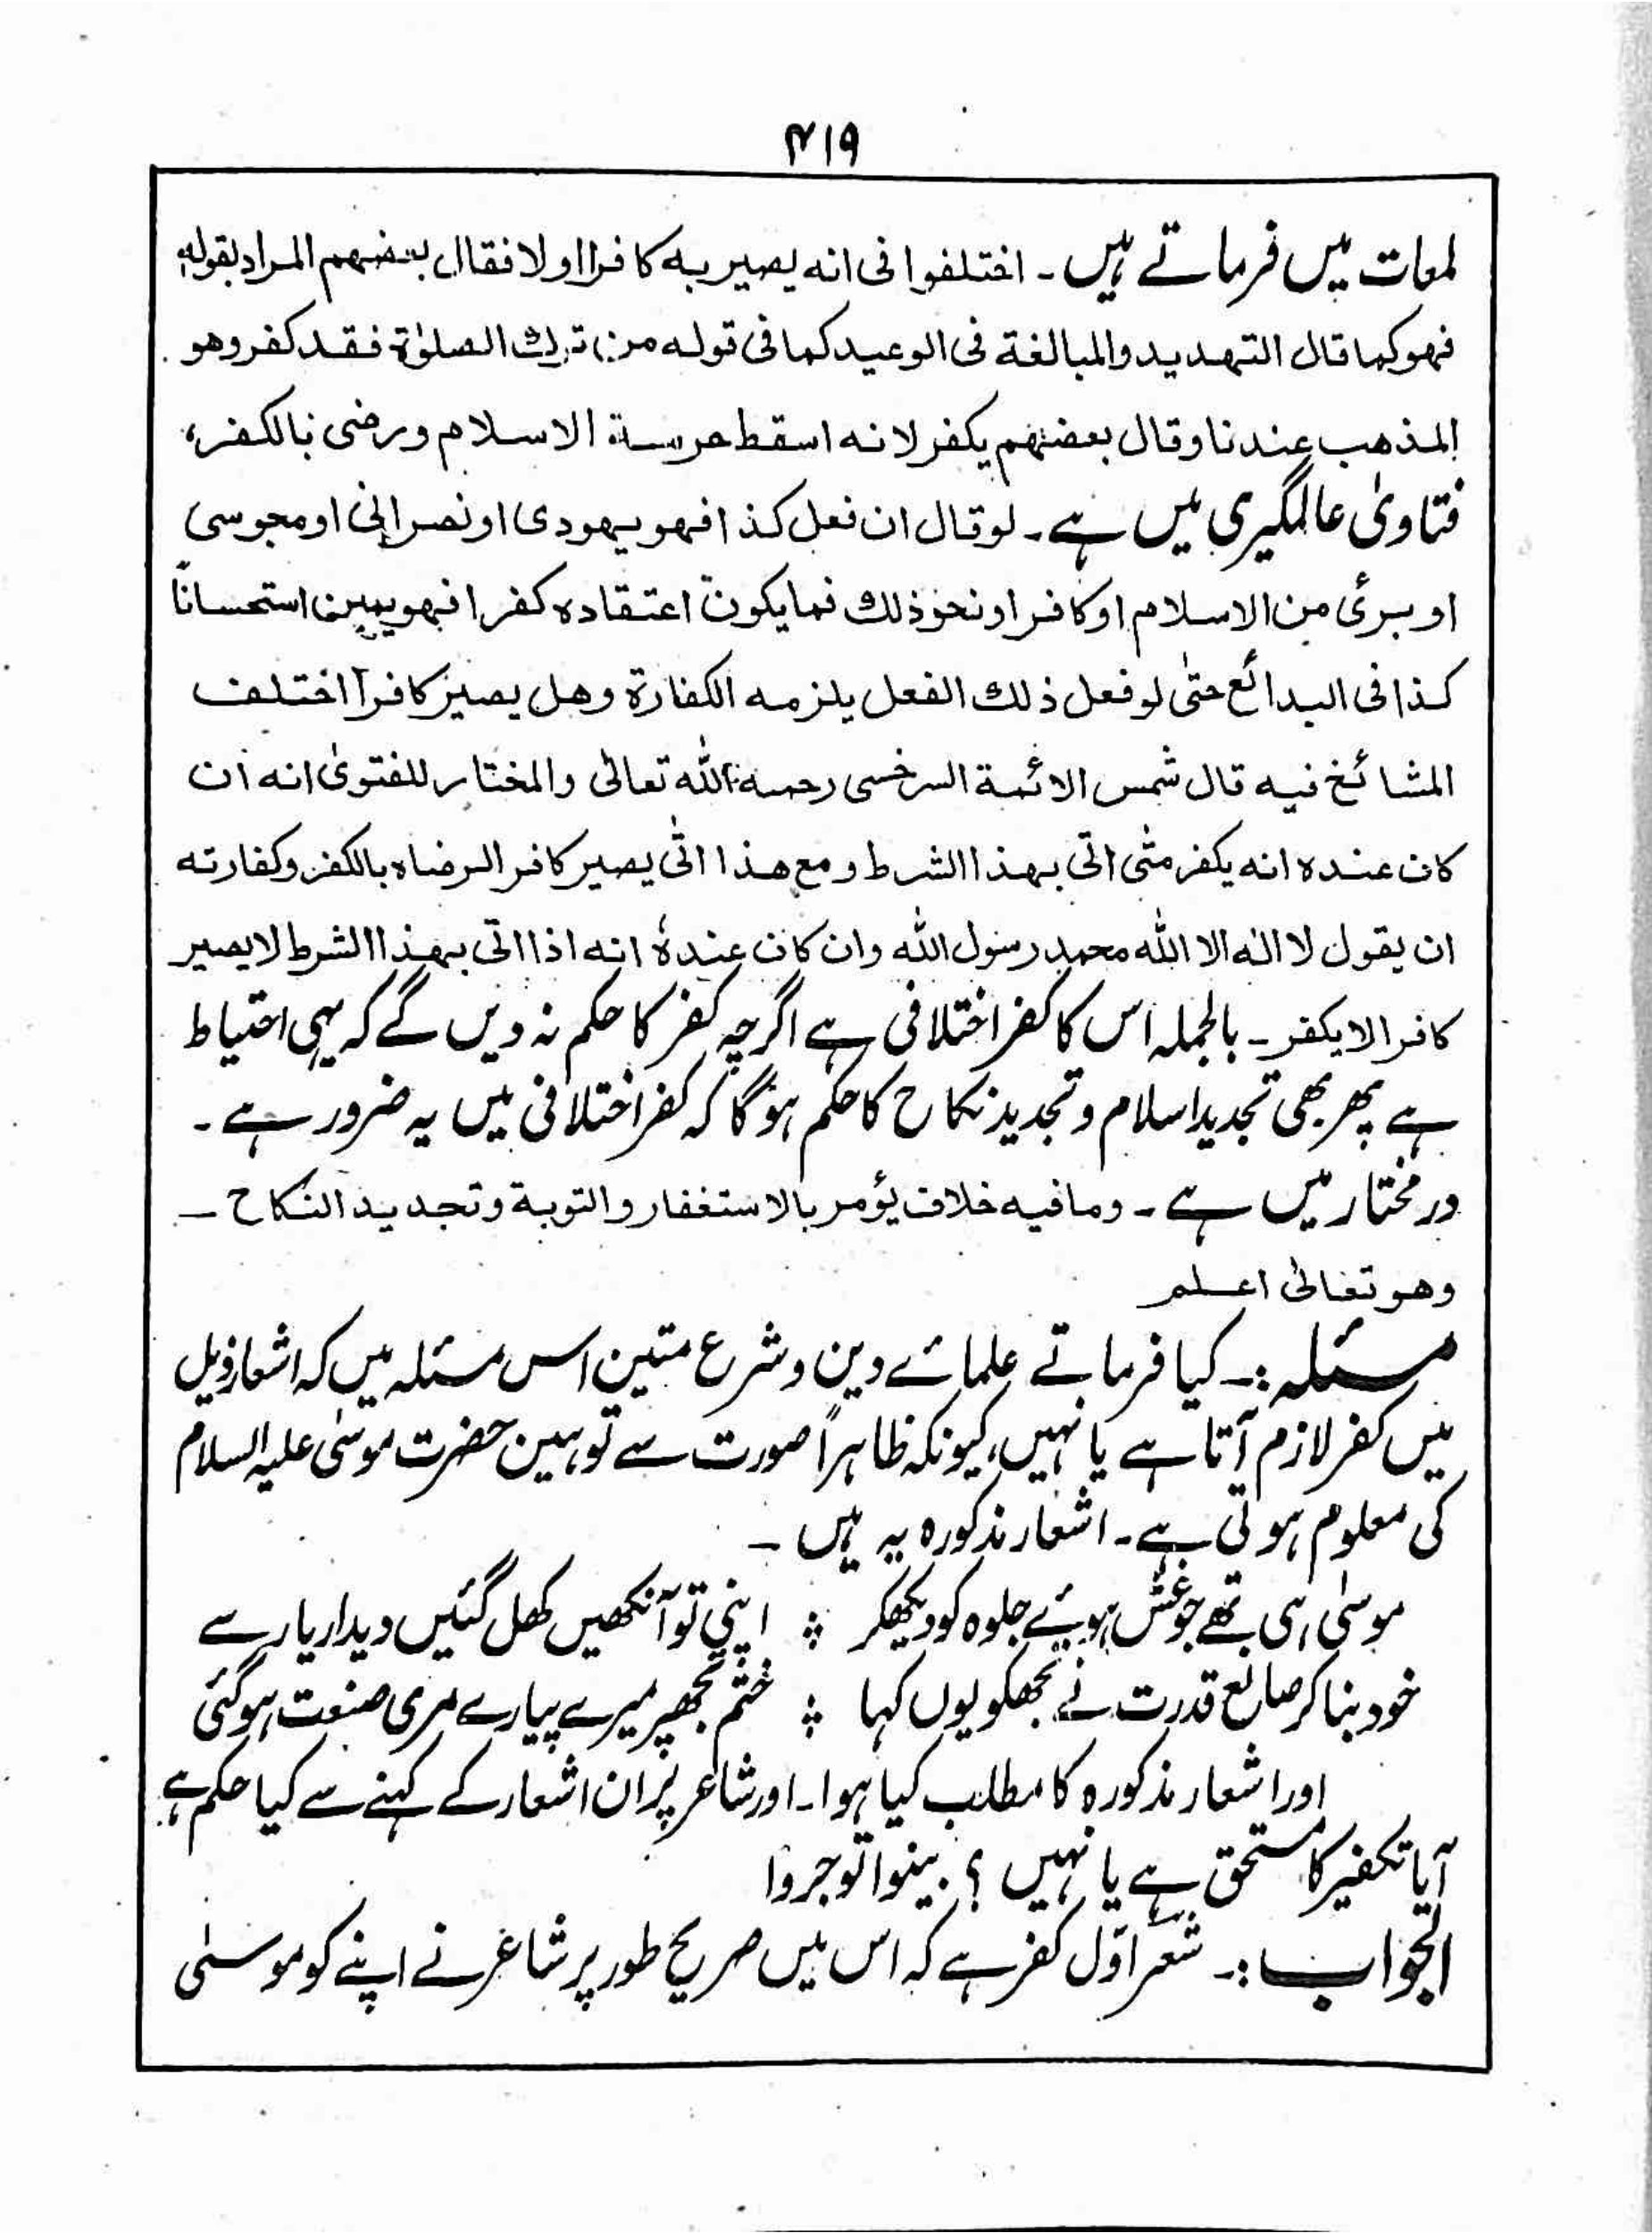 ۴۱۹
لمعات میں فرماتے ہیں۔ اختلفوا فی انه یصیر به کافرا اولا فقال بعضهم المراد بقوله
فهو کما قال التهدید والمبالغة فی الوعید کما فی قوله من ترك الصلوٰة فقد کفر وهو
المذهب عندنا وقال بعضهم یکفر لانه اسقط حرمة الاسلام ورضی بالکفر،
فتاویٰ عالمگیری میں ہے۔ لو قال ان فعل کذا فهو یهودی او نصرانی او مجوسی
او بریٔ من الاسلام او کافر او نحو ذلك فما یکون اعتقاده کفرا فهو یمین استحسانًا
کذا فی البدائع حتیٰ لو فعل ذلك الفعل یلزمه الکفارة وهل یصیر کافرا اختلف
المشائخ فیه قال شمس الائمة السرخسی رحمه الله تعالیٰ والمختار للفتویٰ انه ان
کان عنده انه یکفر متٰی اتی بهذا الشرط ومع هذا اتٰی یصیر کافر الرضاه بالکفر وکفارته
ان یقول لا الٰه الا الله محمد رسول الله وان کان عندهٗ انه اذا اتی بهذا الشرط لا یصیر
کافرا لا یکفر۔ بالجملہ اس کا کفر اختلافی ہے اگرچہ کفر کا حکم نہ دیں گے کہ یہی احتیاط
ہے پھر بھی تجدید اسلام و تجدید نکاح کا حکم ہوگا کہ کفر اختلافی میں یہ ضرور ہے۔
در مختار میں ہے۔ وما فیه خلاف یؤمر بالاستغفار والتوبة وتجدید النکاح ۔
وهو تعالیٰ اعلم
مسئلہ :۔ کیا فرماتے علمائے دین و شرع متین اس مسئلہ میں کہ اشعار ذیل
میں کفر لازم آتا ہے یا نہیں، کیونکہ ظاہراً صورت سے توہین حضرت موسیٰ علیہ السلام
کی معلوم ہوتی ہے۔ اشعار مذکورہ یہ ہیں ۔
موسیٰ ہی تھے جو غش ہوئے جلوہ کو دیکھکر ؞ اپنی تو آنکھیں کھل گئیں دیدار یار سے
خود بنا کر صانع قدرت نے تجھکو یوں کہا ؞ ختم تجھپر میرے پیارے مری صنعت ہوگئی
اور اشعار مذکورہ کا مطلب کیا ہوا۔ اور شاعر پر ان اشعار کے کہنے سے کیا حکم ہے
آیا تکفیر کا مستحق ہے یا نہیں ؟ بینوا توجروا
الجواب :۔ شعر اوّل کفر ہے کہ اس میں صریح طور پر شاعر نے اپنے کو موسیٰ